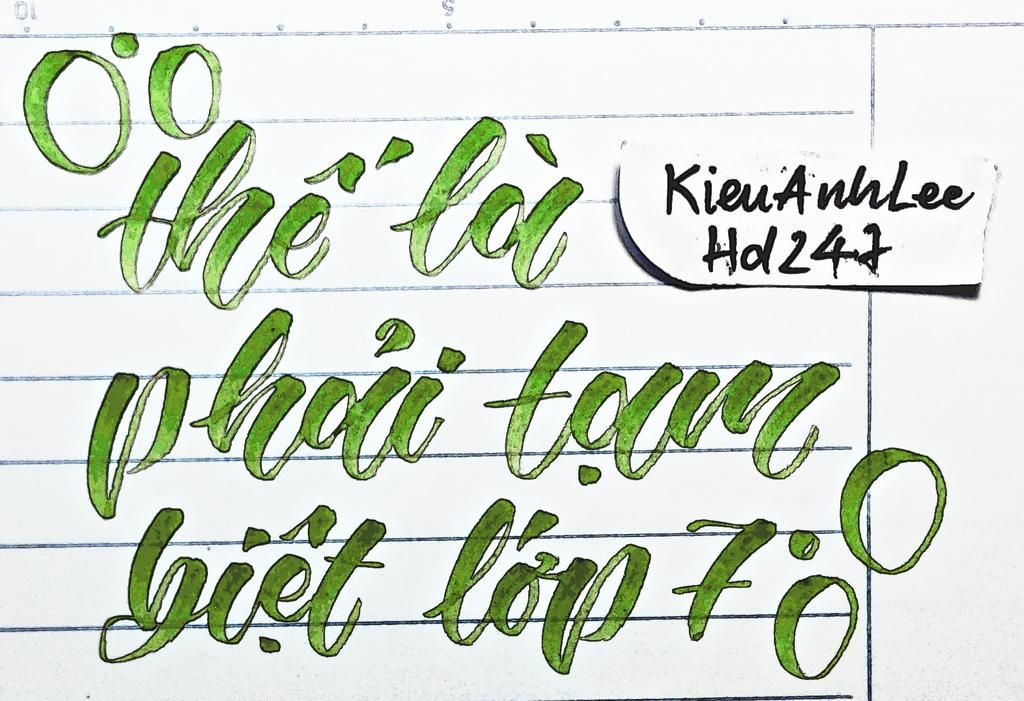 thế là
KieuAnhLee
Hd247
phải tạm
biệt lớp 7